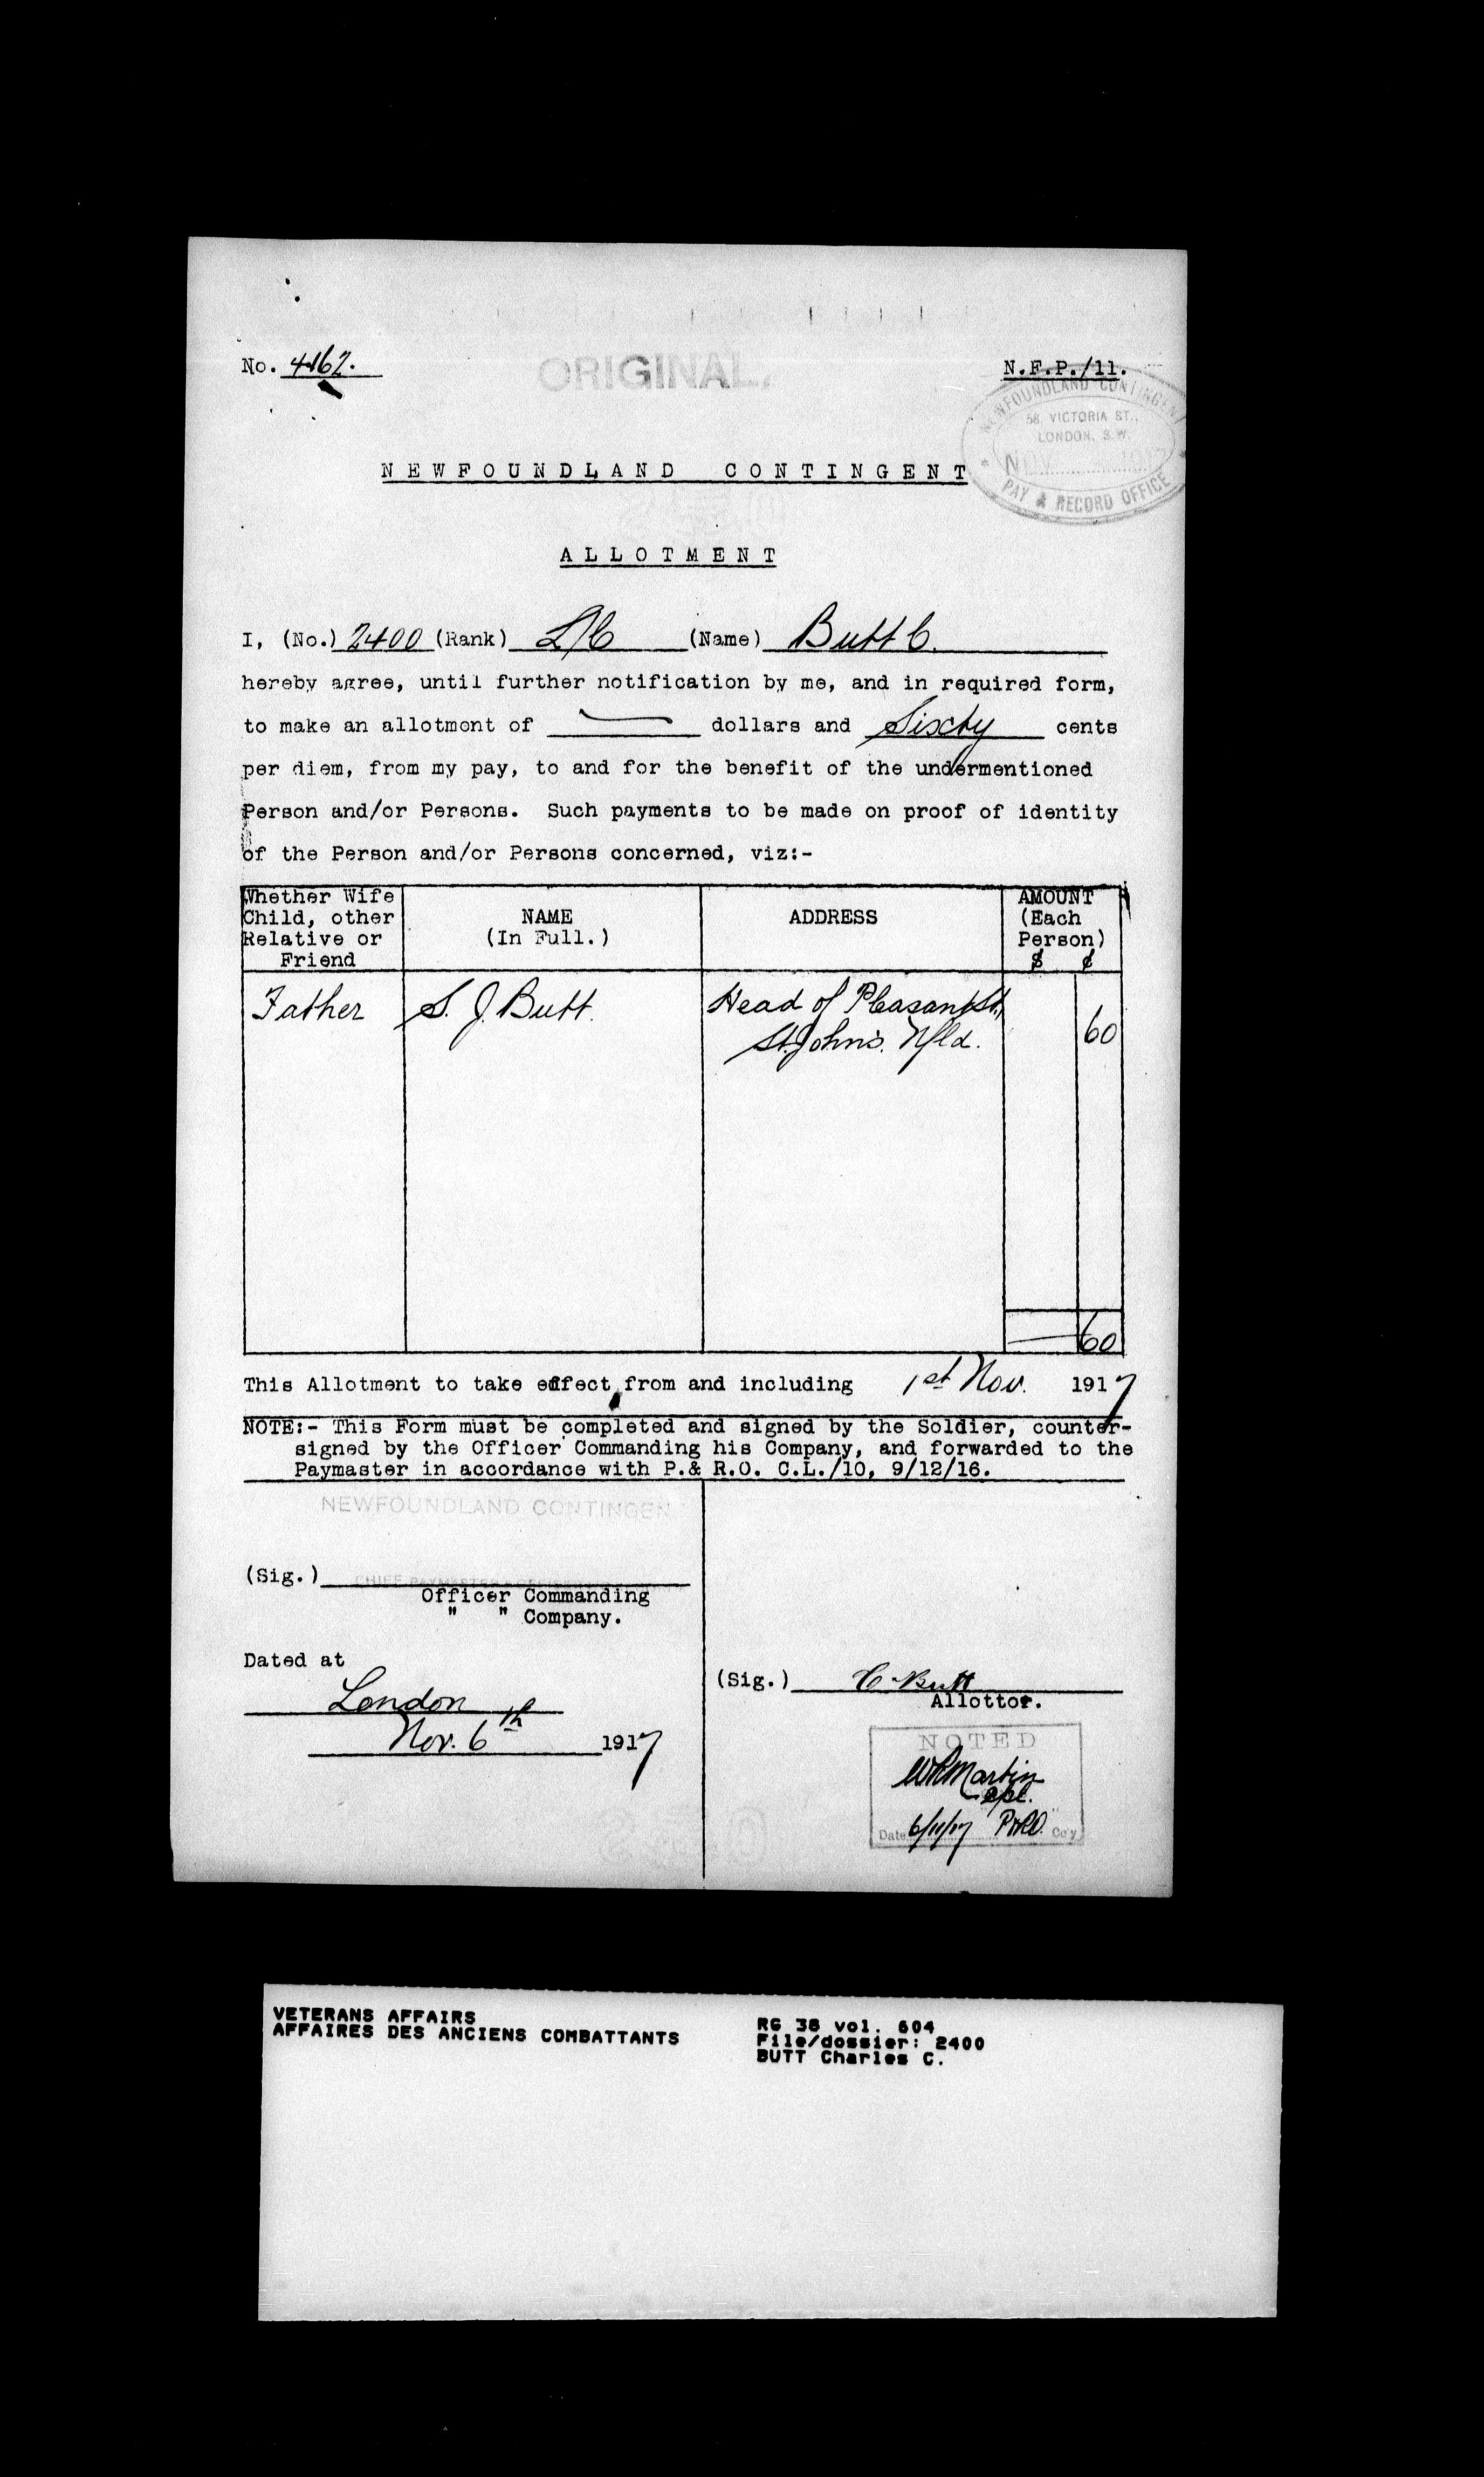 No. 4162.
ORIGINAL.
N.F.P./11.
NEWFOUNDLAND CONTINGENT
58, VICTORIA ST.,
LONDON, S.W.
NOV 1917
PAY & RECORD OFFICE
NEWFOUNDLAND CONTINGENT
ALLOTMENT
I, (No.) 2400 (Rank) L/C (Name) Butt C.
hereby agree, until further notification by me, and in required form,
to make an allotment of — dollars and Sixty cents
per diem, from my pay, to and for the benefit of the undermentioned
Person and/or Persons. Such payments to be made on proof of identity
of the Person and/or Persons concerned, viz:-
Whether Wife
Child, other
Relative or
Friend
NAME
(In Full.)
ADDRESS
AMOUNT
(Each
Person)
$ ¢
Father S. J. Butt. Head of Pleasant St,
St. John's. Nfld. 60
— 60
This Allotment to take effect from and including 1st Nov. 1917
NOTE:- This Form must be completed and signed by the Soldier, counter-
signed by the Officer Commanding his Company, and forwarded to the
Paymaster in accordance with P.& R.O. C.L./10, 9/12/16.
NEWFOUNDLAND CONTINGEN
(Sig.)
CHIEF PAYMASTER
Officer Commanding
" " Company.
Dated at
London
Nov. 6th 1917
(Sig.) C. Butt
Allottor.
NOTED
W R Martin
Cpl.
Date 6/11/17 P&RO. Coy
VETERANS AFFAIRS
AFFAIRES DES ANCIENS COMBATTANTS
RG 38 vol. 604
File/dossier: 2400
BUTT Charles C.